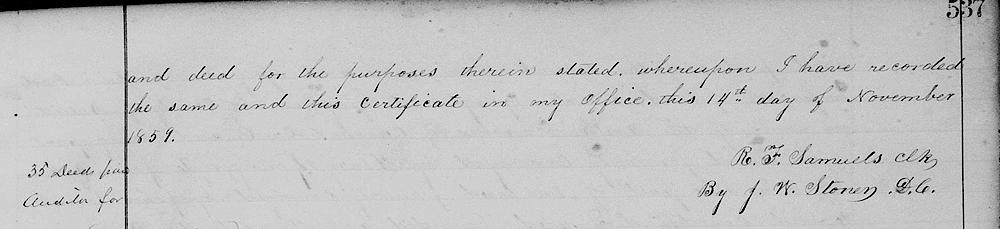 537
and deed for the purposes therein stated. whereupon I have recorded
the same and this Certificate in my Office. this 14th day of November
1859.
R. F. Samuels Clk
By J. W. Stoney D.C.
35 Deeds paid
Auditor for